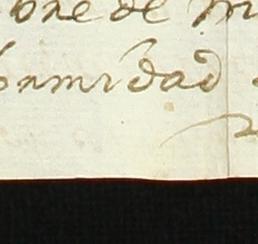 bre de m
ormidad